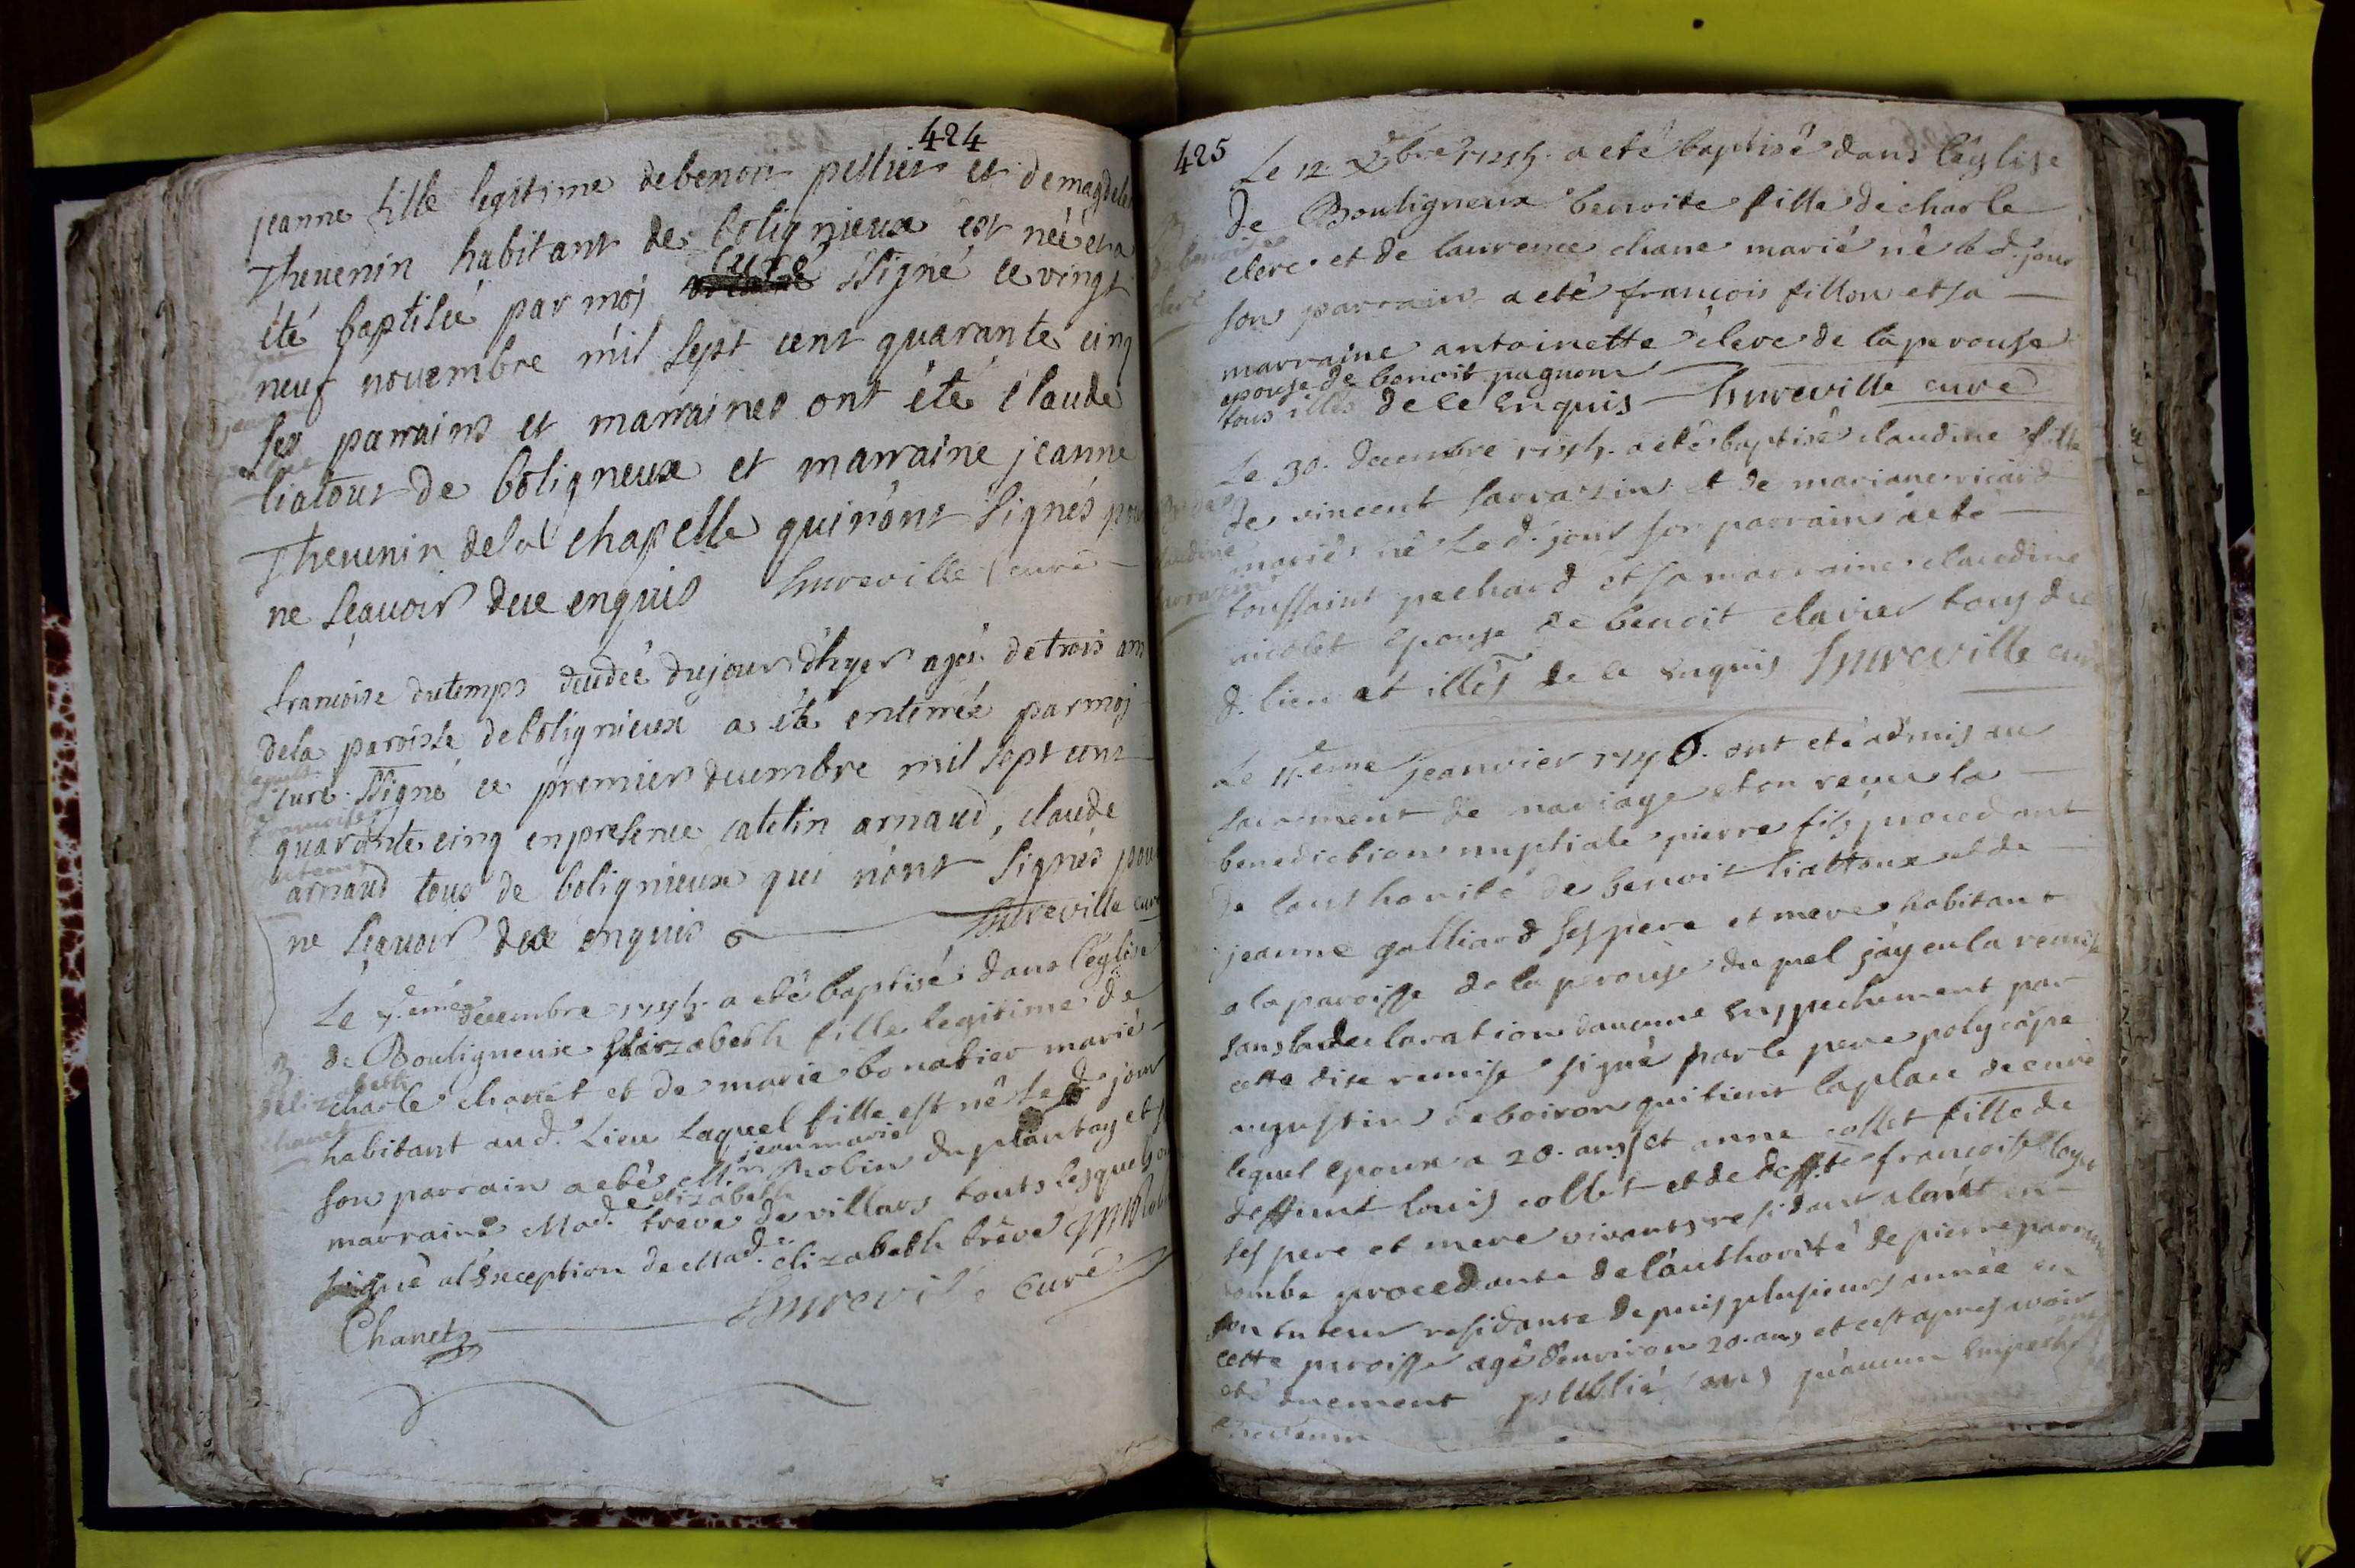 424
jeanne fille legitime de benoit pellier et de magdelei
Thevenin habitant de bolignieux est née et a
été baptisée par moj curé ssigné ce vingt
neuf novembre mil sept cent quarante cinq
ses parrains et marraines ont été claude
liatour de boligneux et marraine jeanne
Thevenin dela chapelle qui n'ont signés pour
ne sçavoir de ce enquis hureville curé
francoise dutemps decedée du jour d'hyer agée de trois ans
dela paroisse de bolignieux a été enterrée par moj
curé ssigné ce premier decembre mil sept cent
quarante cinq en presence catelin arnaud, claude
arnaud tous de bolignieux qui n'ont signés pour
ne sçavoir de ce enquis hureville curé
Le 7.eme decembre 1745. a eté baptisé dans l'eglise
de Bouligneux Elizabeth fille legitime de
B. Elizabeth chanet
charle chanet et de marie bonabier mariés
habitant aud. Lieu Laquel fille est né Le d. jour
son parrain a eté M. jean marie Robin du plantay et sa
marraine Mad.e elizabeth treve de villars touts lesquels ont
signé al'exception de Mad.e elizabeth trêve JM Robin
Chanet hureville curé
425
Le 12 Xbre 1745. a eté baptisé dans l'église
de Bouligneux benoite fille de charle
B. benoite clerc
clerc et de laurence chane marié né le d. jour
son parrain a eté françois fillon et sa
marraine antoinette clerc de la perouse
epouse de benoit pagnon
tous illés de ce enquis hureville curé
Le 30. decembre 1745. a eté baptisé claudine fille
de vincent sarrazin et de mariane ricard
claudine sarrazin
mariés né Le d. jour son parrain a eté
toussaint pechard et sa marraine claudine
nicolet epouse de benoit clavier tous du
d. lieu et illés de ce enquis hureville curé
Le 11.eme jeanvier 1746. ont eté admis au
sacrement de mariage et on receu la
benediction nuptiale pierre fils procedant
de l'authorité de benoit liattoux et de
jeanne galliard ses père et mere habitant
a la paroisse de la perouse duquel j'ay eu la remise
sans la declaration d'aucune empechement par
cette dite remise signé par le pere polycarpe
augustin de boiron qui tient la place de curé
lequel epoux a 20. ans et anne collet fille de
deffunt louis collet et de deff.te françoise loyet
ses pere et mere vivants residant a lanet en
dombe procedante de l'authorité de pierre parran
son tuteur residante depuis plusieurs année en
cette paroisse agé d'environ 20. ans et cest apres avoir
eté duement publié sans qu'aucun empech